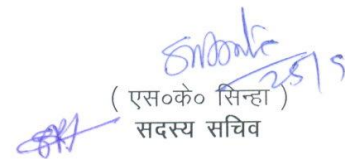 25/9
( एस०के० सिन्हा )
सदस्य सचिव